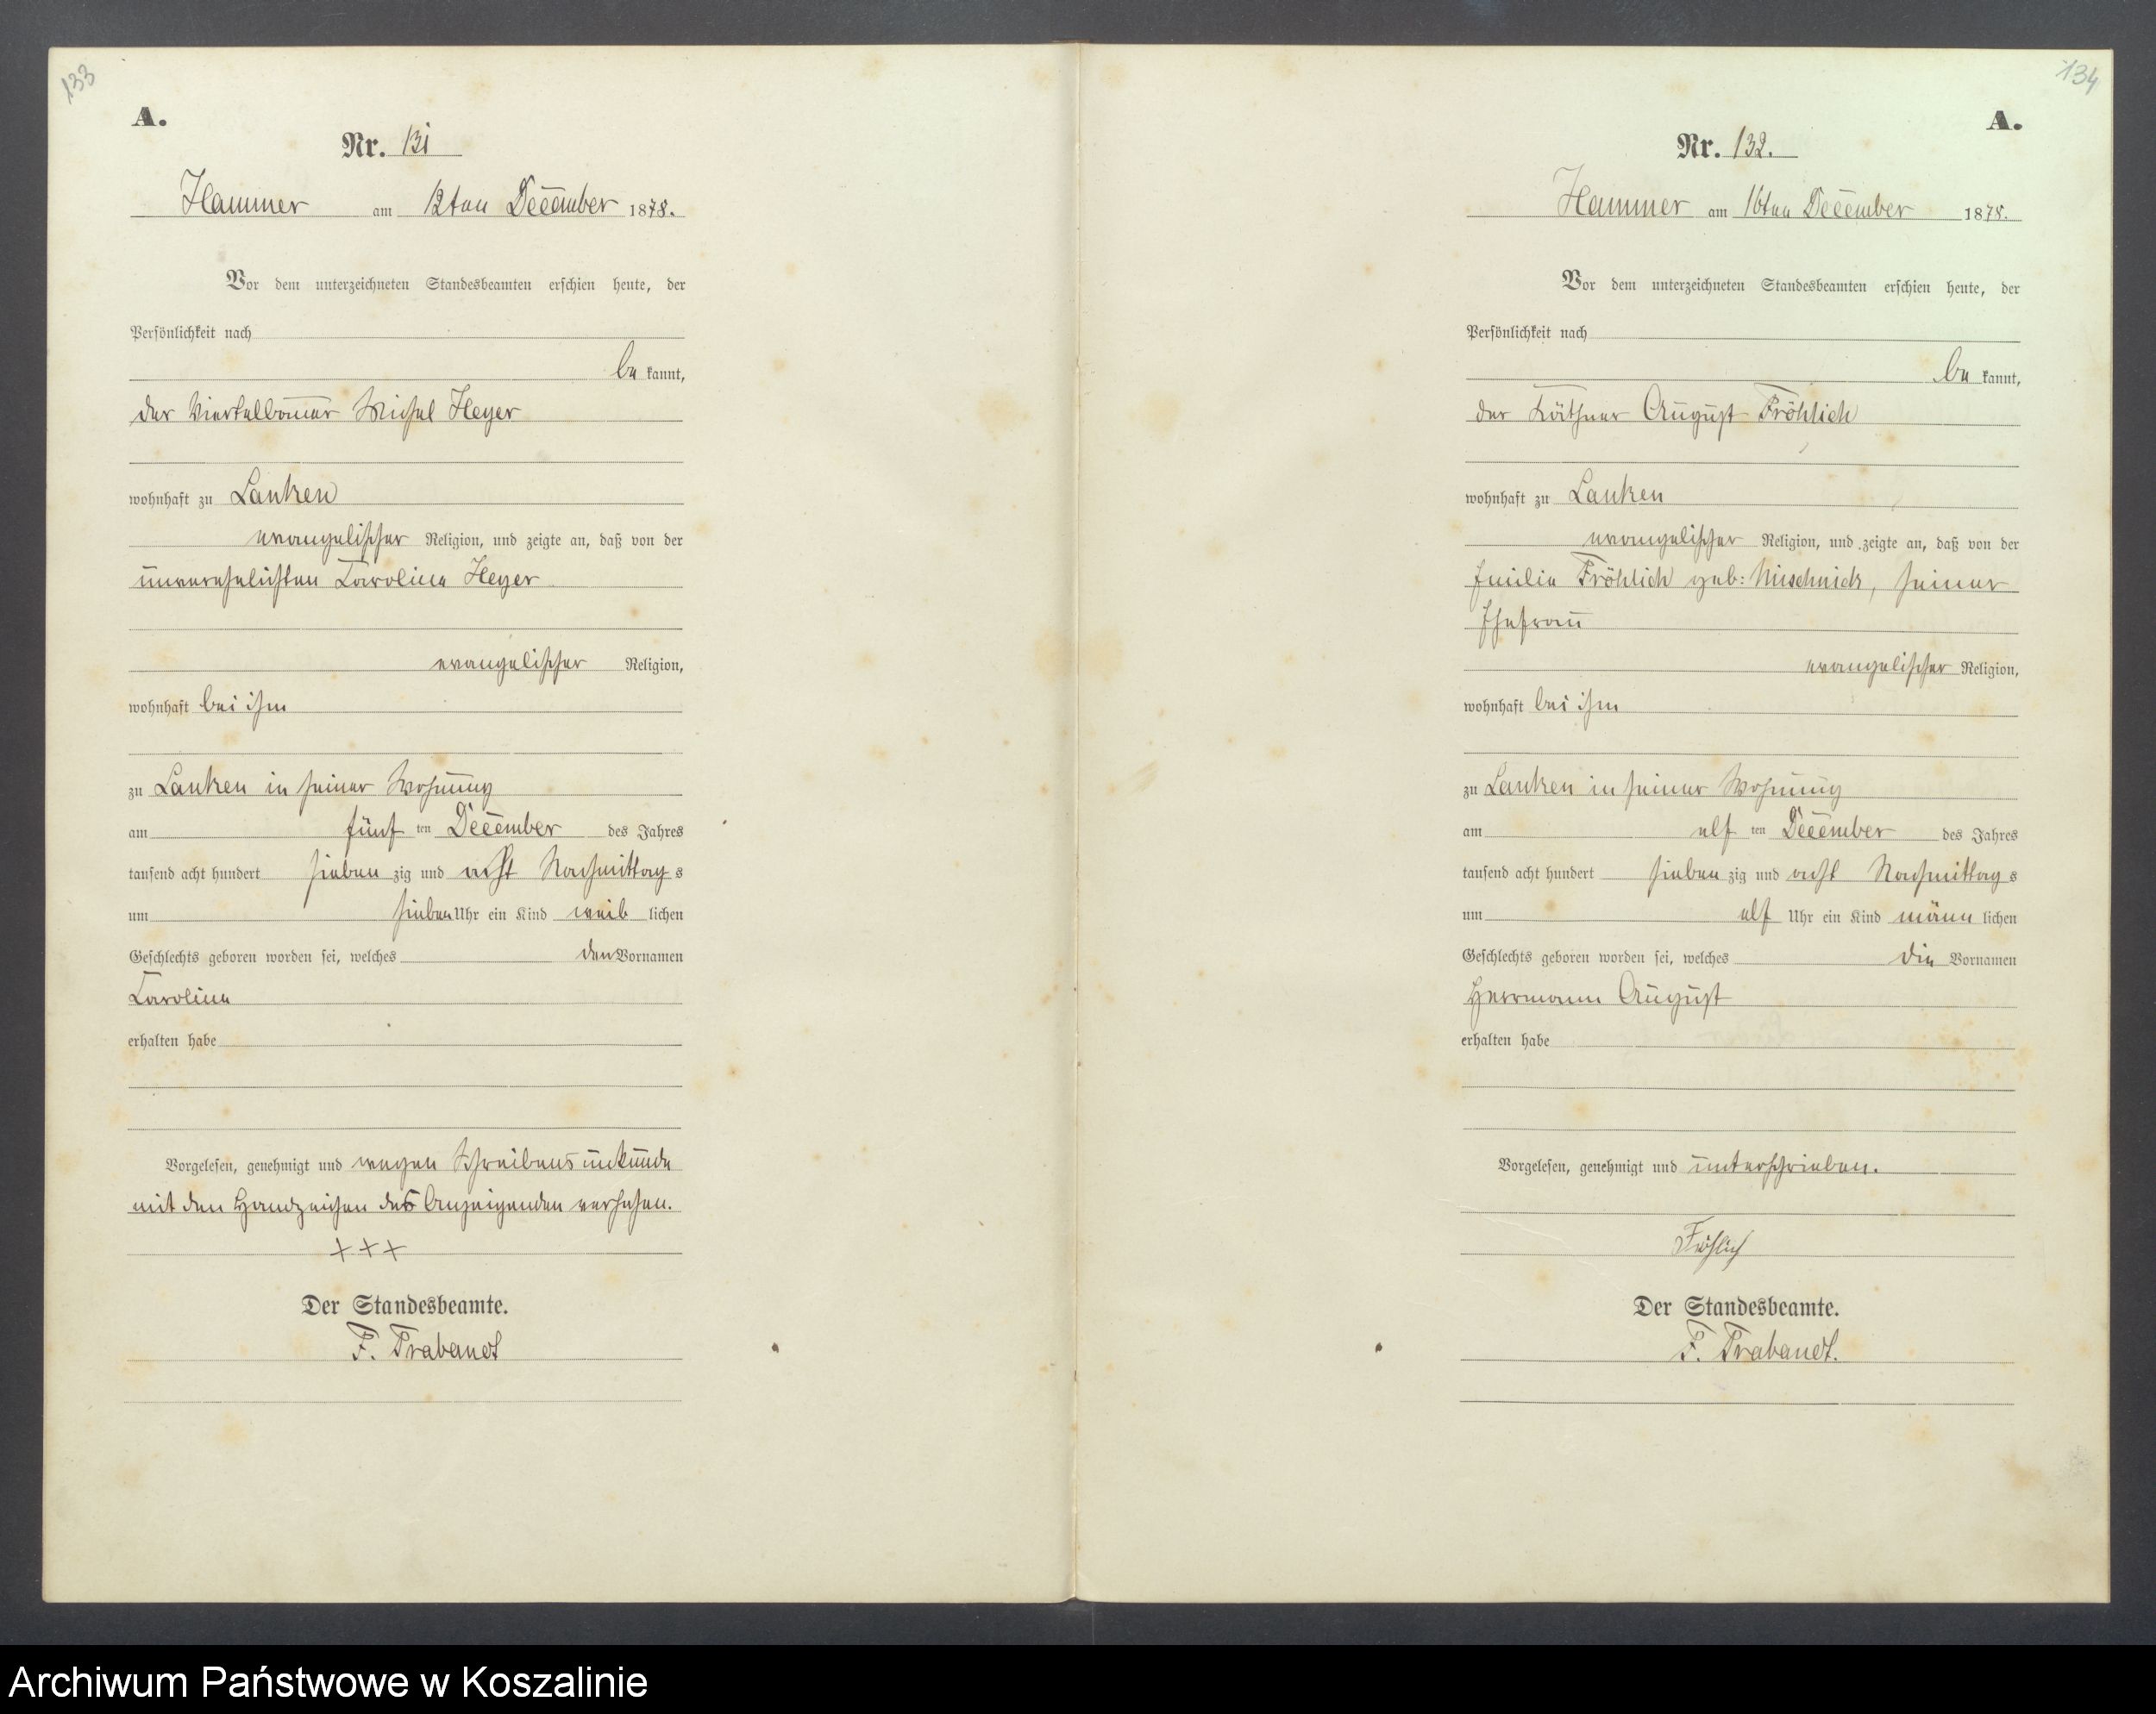 133
A.
Nr. 131
Hammer am 12ten December 1878.
Vor dem unterzeichneten Standesbeamten erschien heute, der
Persönlichkeit nach
be kannt,
der Viertelbauer Michel Heyer
wohnhaft zu Lanken
evangelischer Religion, und zeigte an, daß von der
unverehelichten Caroline Heyer
evangelischer Religion,
wohnhaft bei ihm
zu Lanken in seiner Wohnung
am fünf ten December des Jahres
tausend acht hundert sieben zig und acht Nachmittag s
um sieben Uhr ein Kind weib lichen
Geschlechts geboren worden sei, welches den Vornamen
Caroline
erhalten habe
Vorgelesen, genehmigt und wegen Schreibensunkunde
mit den Handzeichen des Anzeigenden versehen.
+++
Der Standesbeamte.
F. Trabandt
134
A.
Nr. 132.
Hammer am 16ten December 1878.
Vor dem unterzeichneten Standesbeamten erschien heute, der
Persönlichkeit nach
be kannt,
der Käthner August Fröhlich
wohnhaft zu Lanken
evangelischer Religion, und zeigte an, daß von der
Emilie Fröhlich geb: Mischnick, seiner
Ehefrau
evangelischer Religion,
wohnhaft bei ihm
zu Lanken in seiner Wohnung
am elf ten December des Jahres
tausend acht hundert sieben zig und acht Nachmittag s
um elf Uhr ein Kind männ lichen
Geschlechts geboren worden sei, welches die Vornamen
Herrmann August
erhalten habe
Vorgelesen, genehmigt und unterschrieben.
Fröhlich
Der Standesbeamte.
F. Trabandt.
Archiwum Państwowe w Koszalinie